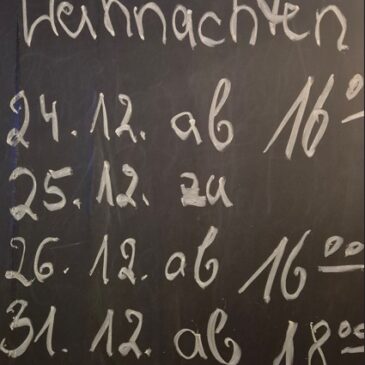 Weihnachten
24. 12. ab 16 00
25. 12. zu
26. 12. ab 16 00
31. 12. ab 18 00